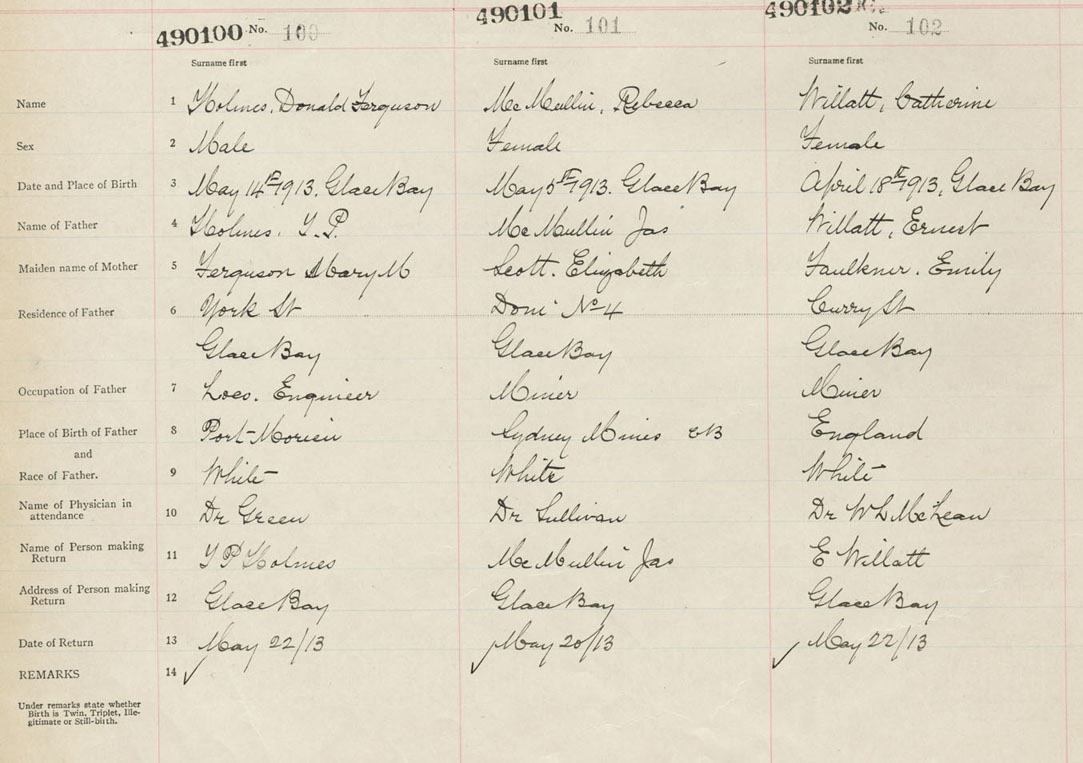 490100 No. 100 490101 No. 101 490102 No. 102
Surname first Surname first Surname first
Name 1 Holmes, Donald Ferguson McMullin, Rebecca Willatt, Catherine
Sex 2 Male Female Female
Date and Place of Birth 3 May 14th 1913. Glace Bay May 5th 1913. Glace Bay April 18th 1913, Glace Bay
Name of Father 4 Holmes. T.P. McMullin Jas Willatt, Ernest
Maiden name of Mother 5 Ferguson Mary M Scott. Elizabeth Faulkner. Emily
Residence of Father 6 York St Dom No 4 Curry St
Glace Bay Glace Bay Glace Bay
Occupation of Father 7 Loco. Engineer Miner Miner
Place of Birth of Father 8 Port-Morien Sydney Mines CB England
and
Race of Father. 9 White White White
Name of Physician in
attendance 10 Dr Green Dr Sullivan Dr W L McLean
Name of Person making
Return 11 T P Holmes McMullin Jas E Willatt
Address of Person making
Return 12 Glace Bay Glace Bay Glace Bay
Date of Return 13 May 22/13 May 20/13 May 22/13
REMARKS 14
Under remarks state whether
Birth is Twin, Triplet, Ille-
gitimate or Still-birth.